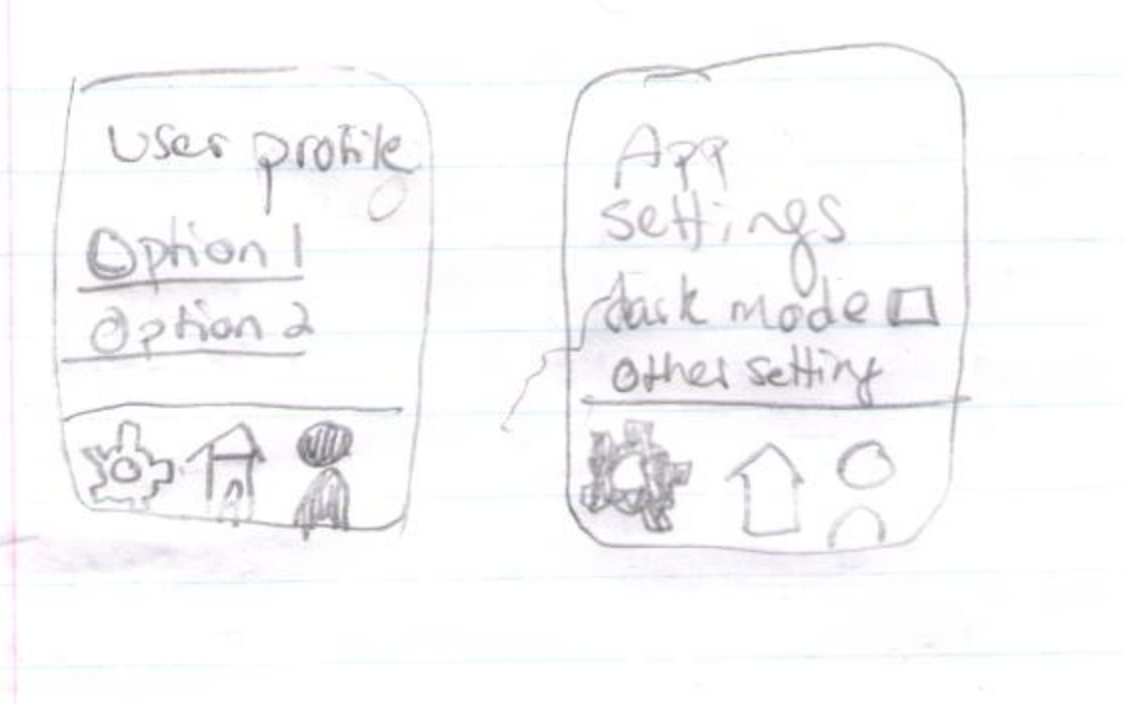 User profile
Option 1
Option 2
App
settings
dark mode
other setting